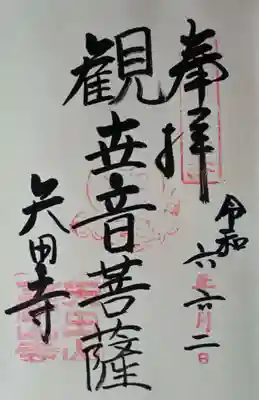 奉拝
令和六年六月二日
観世音菩薩
矢田寺